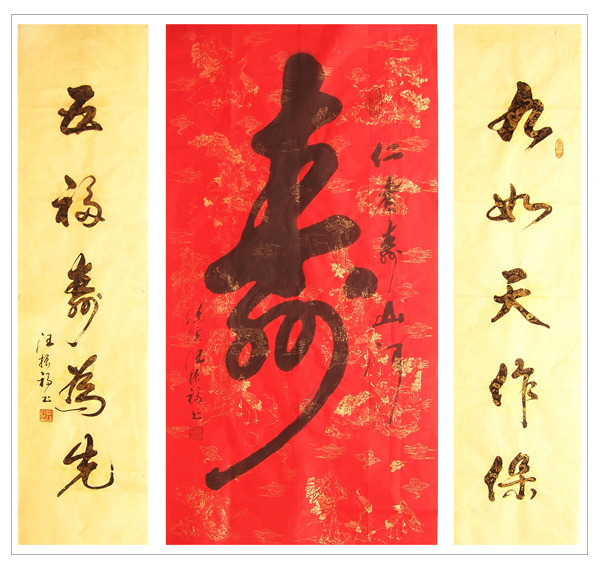 九如天作保
仁者壽山河
壽
汪振福书
五福壽為先
汪振福书